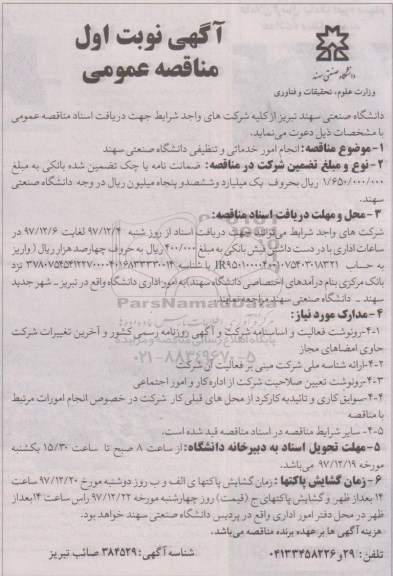 آگهی نوبت اول
مناقصه عمومی
دانشگاه صنعتی سهند
وزارت علوم، تحقیقات و فناوری
دانشگاه صنعتی سهند تبریز از کلیه شرکت های واجد شرایط جهت دریافت اسناد مناقصه عمومی
با مشخصات ذیل دعوت می‌نماید.
۱-موضوع مناقصه: انجام امور خدماتی و تنظیفی دانشگاه صنعتی سهند
۲-نوع و مبلغ تضمین شرکت در مناقصه: ضمانت نامه یا چک تضمین شده بانکی به مبلغ
۱/۶۵۰/۰۰۰/۰۰۰ ریال بحروف یک میلیارد وششصدو پنجاه میلیون ریال در وجه دانشگاه صنعتی
سهند.
۳-محل و مهلت دریافت اسناد مناقصه:
شرکت های واجد شرایط می‌توانند جهت دریافت اسناد از روز شنبه ۹۷/۱۲/۴ لغایت ۹۷/۱۲/۶ در
ساعات اداری با در دست داشتن فیش بانکی به مبلغ ۴۰۰/۰۰۰ ریال به حروف چهارصد هزار ریال ( واریز
به حساب با شناسه نزد
بانک مرکزی بنام درآمدهای اختصاصی دانشگاه سهند)به امور اداری دانشگاه واقع در تبریز ـ شهر جدید
سهند ـ دانشگاه صنعتی سهند مراجعه نمایند
ParsNamadData
۴-مدارک مورد نیاز:
۴-۱-رونوشت فعالیت و اساسنامه شرکت و آگهی روزنامه رسمی کشور و آخرین تغییرات شرکت
حاوی امضاهای مجاز
۴-۲-ارائه شناسه ملی شرکت مبنی بر فعالیت آن شرکت
۰۲۱-۸۸۳۴۹۶۷۰-۵
۴-۳-رونوشت تعیین صلاحیت شرکت از اداره کار و امور اجتماعی
۴-۴-سوابق کاری و تائیدیه کارکرد از محل های قبلی کار شرکت در خصوص انجام امورات مرتبط
با مناقصه
۴-۵- سایر شرایط مناقصه در اسناد مناقصه قید شده است.
۵-مهلت تحویل اسناد به دبیرخانه دانشگاه: از ساعت ۸ صبح تا ساعت ۱۵/۳۰ یکشنبه
مورخه ۹۷/۱۲/۱۹ می‌باشد.
۶-زمان گشایش پاکتها : زمان گشایش پاکتها ی الف و ب روز دوشنبه مورخ ۹۷/۱۲/۲۰ ساعت
۱۴ بعداز ظهر و گشایش پاکتهای ج (قیمت) روز چهارشنبه مورخه ۹۷/۱۲/۲۲ راس ساعت ۱۴ بعداز
ظهر در محل دفتر امور اداری واقع در پردیس دانشگاه صنعتی سهند خواهد بود.
هزینه آگهی ها بر عهده برنده مناقصه می‌باشد.
تلفن: ۲۹و ۰۴۱۳۳۴۵۸۲۲۶
شناسه آگهی: ۳۸۴۵۲۹ صائب تبریز